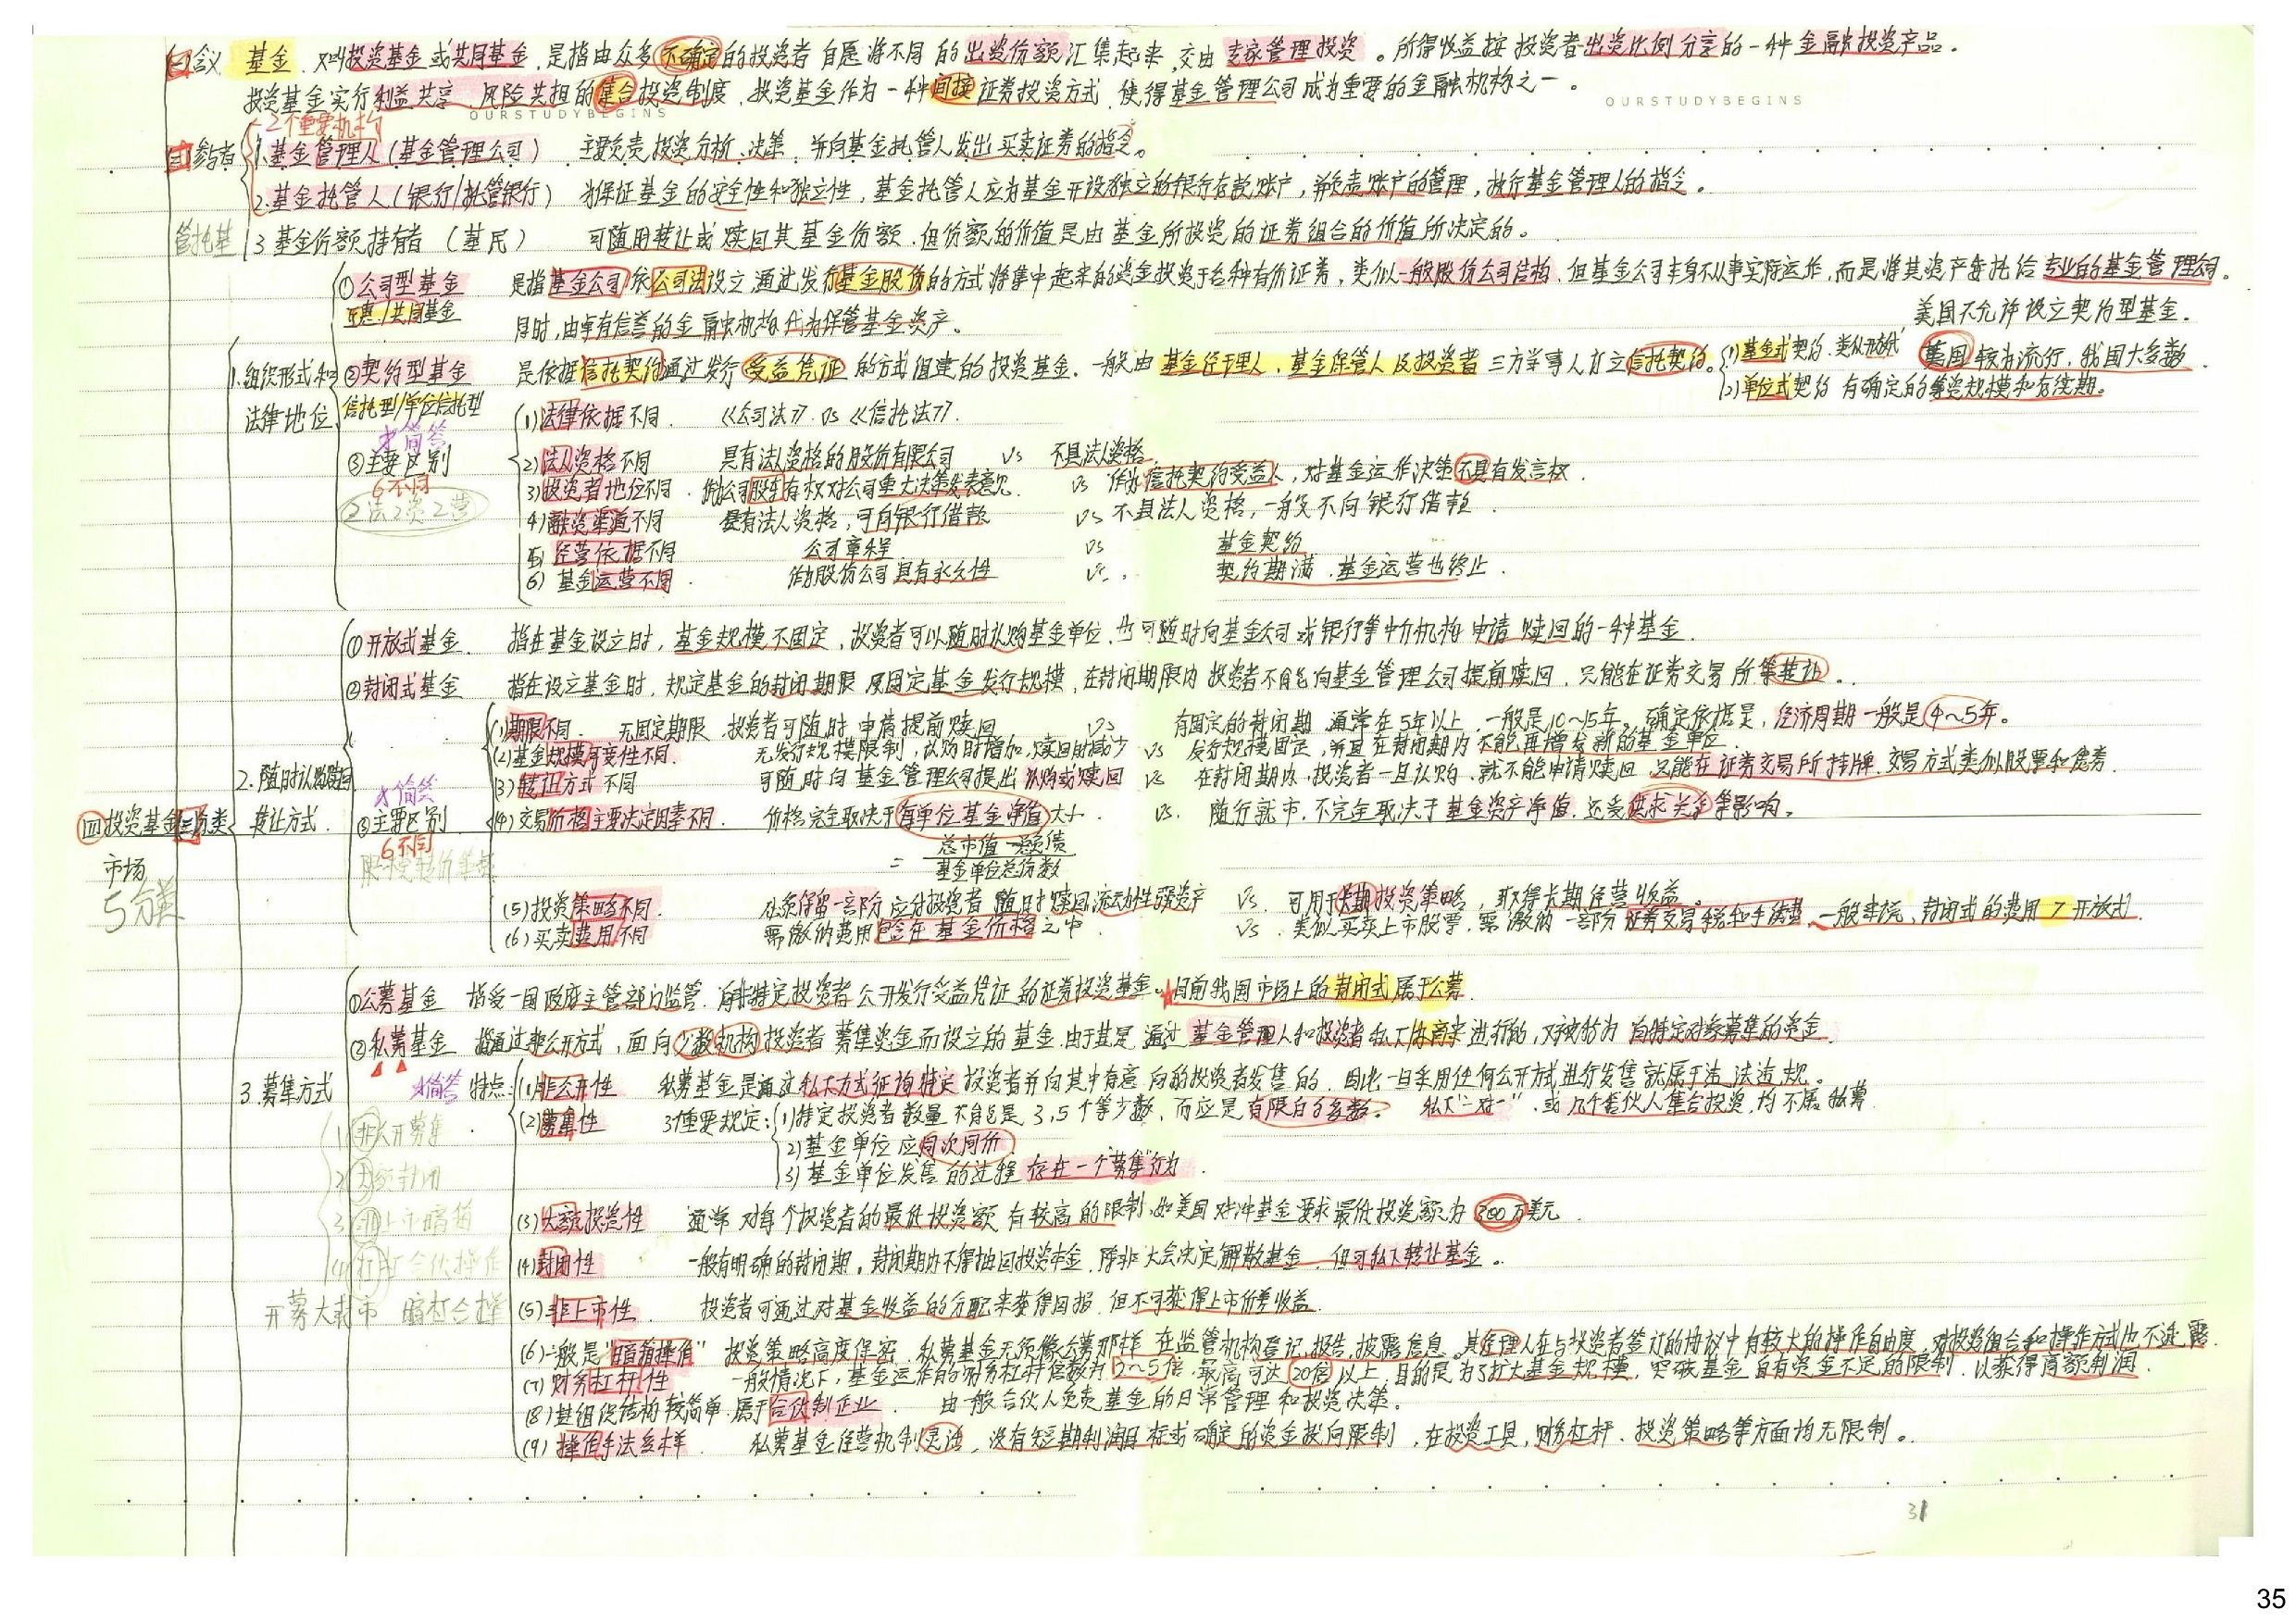 (一)含义 基金.又叫投资基金或共同基金,是指由众多不确定的投资者自愿将不同的出资份额汇集起来,交由专家管理投资。所得收益按投资者出资比例分享的一种金融投资产品。
投资基金实行利益共享、风险共担的集合投资制度.投资基金作为一种间接证券投资方式,使得基金管理公司成为重要的金融机构之一。
OURSTUDYBEGINS
OURSTUDYBEGINS
2个重要机构
(二)参与者 1.基金管理人(基金管理公司) 主要负责投资分析、决策,并向基金托管人发出买卖证券的指令。
2.基金托管人(银行/托管银行) 为保证基金的安全性和独立性,基金托管人应为基金开设独立的银行存款账户,并负责账户的管理,执行基金管理人的指令。
管托基 3 基金份额持有者 (基民) 可随用转让或赎回其基金份额.但份额的价值是由基金所投资的证券组合的价值所决定的。
①公司型基金 是指基金公司依公司法设立,通过发行基金股份的方式将集中起来的资金投资于各种有价证券,类似一般股份公司结构.但基金公司本身不从事实际运作,而是将其资产委托给专业的基金管理公司。
互惠/共同基金 同时,由卓有信誉的金融机构代为保管基金资产。
美国不允许设立契约型基金.
1.组织形式和法律地位
②契约型基金 是依据信托契约通过发行受益凭证的方式组建的投资基金.一般由基金经理人、基金保管人及投资者三方当事人订立信托契约。
(1)基金式契约.类似开放式 英国较为流行,我国大多数.
(2)单位式契约 有确定的筹资规模和存续期。
信托型/单位信托型
简答
③主要区别
6不同
2法2资2营
(1)法律依据不同. 《公司法》 vs 《信托法》.
2)法人资格不同 具有法人资格的股份有限公司 vs 不具法人资格.
3)投资者地位不同. 作为公司股东有权对公司重大决策发表意见 vs 作为信托契约受益人,对基金运作决策不具有发言权.
4)融资渠道不同 具有法人资格,可向银行借款 vs 不具法人资格,一般不向银行借款.
5)经营依据不同 公司章程 vs 基金契约
6)基金运营不同. 作为股份公司具有永久性 vs. 契约期满.基金运营也终止.
①开放式基金. 指在基金设立时,基金规模不固定,投资者可以随时认购基金单位.也可随时向基金公司或银行等中介机构申请赎回的一种基金.
②封闭式基金 指在设立基金时,规定基金的封闭期限及固定基金发行规模,在封闭期限内投资者不能向基金管理公司提前赎回,只能在证券交易所等转让.
(1)期限不同. 无固定期限.投资者可随时申请提前赎回 vs 有固定的封闭期 通常在5年以上,一般是10~15年。确定依据是,经济周期一般是4~5年。
(2)基金规模可变性不同. 无发行规模限制,认购时增加.赎回时减少 vs 发行规模固定,并且在封闭期内不能再增发新的基金单位.
(3)转让方式不同 可随时向基金管理公司提出认购或赎回 vs 在封闭期内,投资者一旦认购.就不能申请赎回.只能在证券交易所挂牌.交易方式类似股票和债券.
2.随时认购赎回 转让方式.
简答
③主要区别
6不同
(4)交易价格主要决定因素不同. 价格完全取决于每单位基金净值大小. vs. 随行就市.不完全取决于基金资产净值.还受供求关系等影响。
= 总市值-总负债 / 基金单位总份数
(四)投资基金市场 (三)分类
5分类
(5)投资策略不同. 必须保留一部分应付投资者随时赎回流动性强资产 vs. 可用于长期投资策略,取得长期经营收益。
(6)买卖费用不同 需缴纳费用包含在基金价格之中. vs. 类似买卖上市股票.需缴纳一部分证券交易税和手续费,一般来说,封闭式的费用>开放式.
①公募基金 指受一国政府主管部门监管.向非特定投资者公开发行受益凭证的证券投资基金。★目前我国市场上的封闭式属于公募.
②私募基金 指通过非公开方式,面向少数机构投资者募集资金而设立的基金.由于其是通过基金管理人和投资者私下协商来进行的,又被称为向特定对象募集的资金.
3.募集方式
简答 特点:
(1)非公开性 私募基金是通过私下方式征询特定投资者并向其中有意向的投资者发售的.因此一旦采用任何公开方式进行发售就属于违法违规。
(2)募集性 3重要规定: (1)特定投资者数量不能是3,5个等少数,而应是有限的多数。 私下"一对一",或几个合伙人集合投资.均不属私募
2)基金单位应同次同价.
3)基金单位发售的过程存在一个"募集"行为.
1.非公开募集
2.大额封闭
3.非上市暗箱
(4)杠杆合伙操作
开募大封市 暗杠合操
(3)大额投资性 通常对每个投资者的最低投资额有较高的限制.如美国对冲基金要求最低投资额为300万美元.
(4)封闭性 一般有明确的封闭期.封闭期内不得抽回投资本金.除非大会决定解散基金.但可私下转让基金。
(5)非上市性. 投资者可通过对基金收益的分配来获得回报.但不可获得上市价差收益.
(6)一般是"暗箱操作" 投资策略高度保密.私募基金无须像公募那样在监管机构登记、报告、披露信息.其经理人在与投资者签订的协议中有较大的操作自由度.对投资组合和操作方式也不透露.
(7)财务杠杆性 一般情况下,基金运作的财务杠杆倍数为2~5倍.最高可达20倍以上.目的是为了扩大基金规模,突破基金自有资金不足的限制.以获得高额利润.
(8)其组织结构较简单.属于合伙制企业. 由一般合伙人负责基金的日常管理和投资决策。
(9)操作手法多样. 私募基金经营机制灵活,没有短期利润目标或确定的资金投向限制,在投资工具,财务杠杆.投资策略等方面均无限制。
31
35